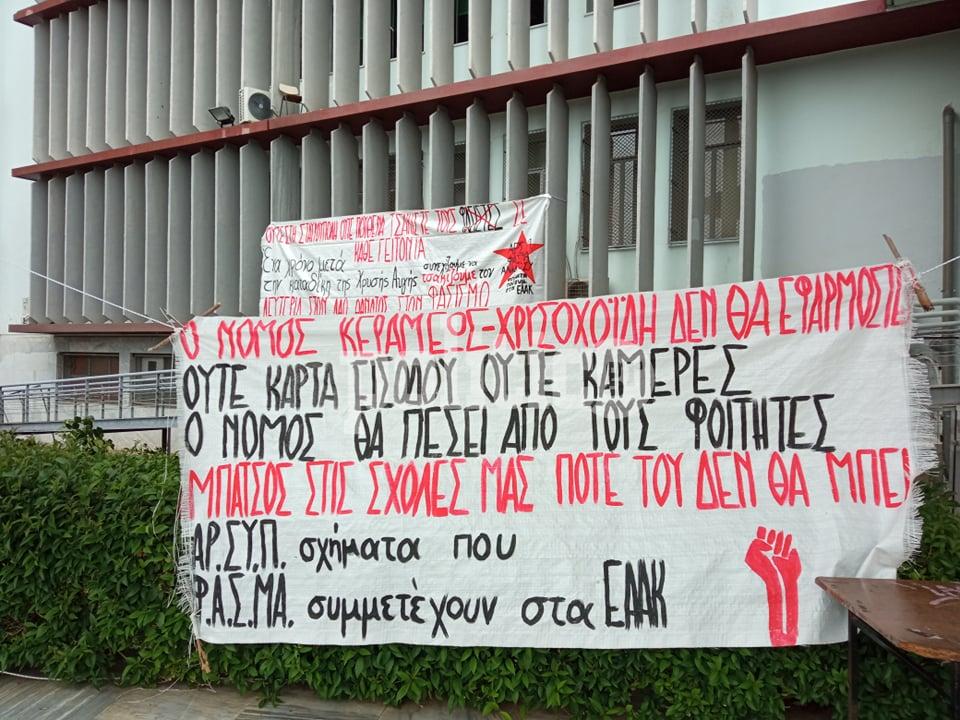 ΟΥΤΕ ΣΤΗ ΣΤΑΥΡΟΥΠΟΛΗ ΟΥΤΕ ΠΟΥΘΕΝΑ ΤΣΑΚΙΣΤΕ ΤΟΥΣ ΦΑΣΙΣΤΕΣ ΣΕ
ΚΑΘΕ ΓΕΙΤΟΝΙΑ
Ένα χρόνο μετά
την καταδίκη της Χρυσής Αυγής
συνεχίζουμε να
τσακίζουμε τον
ΦΑΣΙΣΜΟ
ΕΑΑΚ
Ο ΝΟΜΟΣ ΚΕΡΑΜΕΩΣ-ΧΡΥΣΟΧΟΪΔΗ ΔΕΝ ΘΑ ΕΦΑΡΜΟΣΤΕΙ
ΟΥΤΕ ΚΑΡΤΑ ΕΙΣΟΔΟΥ ΟΥΤΕ ΚΑΜΕΡΕΣ
Ο ΝΟΜΟΣ ΘΑ ΠΕΣΕΙ ΑΠΟ ΤΟΥΣ ΦΟΙΤΗΤΕΣ
ΜΠΑΤΣΟΣ ΣΤΙΣ ΣΧΟΛΕΣ ΜΑΣ ΠΟΤΕ ΤΟΥ ΔΕΝ ΘΑ ΜΠΕΙ
ΑΡ.ΣΥ.Π. σχήματα που
Ρ.Α.Σ.ΜΑ. συμμετέχουν στα ΕΑΑΚ